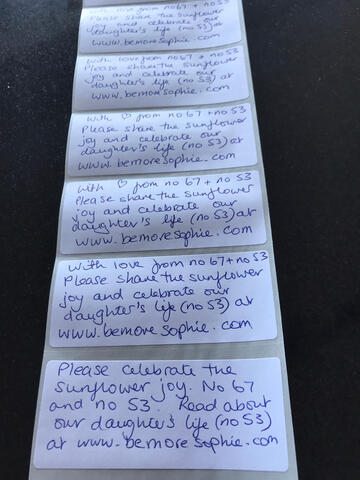 with love from no 67 + no 53
Please share the sunflower
joy and celebrate our
daughter's life (no 53) at
www.bemoresophie.com
with love from no 67 + no 53
Please share the sunflower
joy and celebrate our
daughter's life (no 53) at
www.bemoresophie.com
with ♡ from no 67 + no 53
Please share the sunflower
joy and celebrate our
daughter's life (no 53) at
www.bemoresophie.com
with ♡ from no 67 + no 53
Please share the sunflower
joy and celebrate our
daughter's life (no 53) at
www.bemoresophie.com
with love from no 67 + no 53
Please share the sunflower
joy and celebrate our
daughter's life (no 53) at
www.bemoresophie.com
Please celebrate the
sunflower joy. No 67
and no 53. Read about
our daughter's life (no 53)
at www.bemoresophie.com